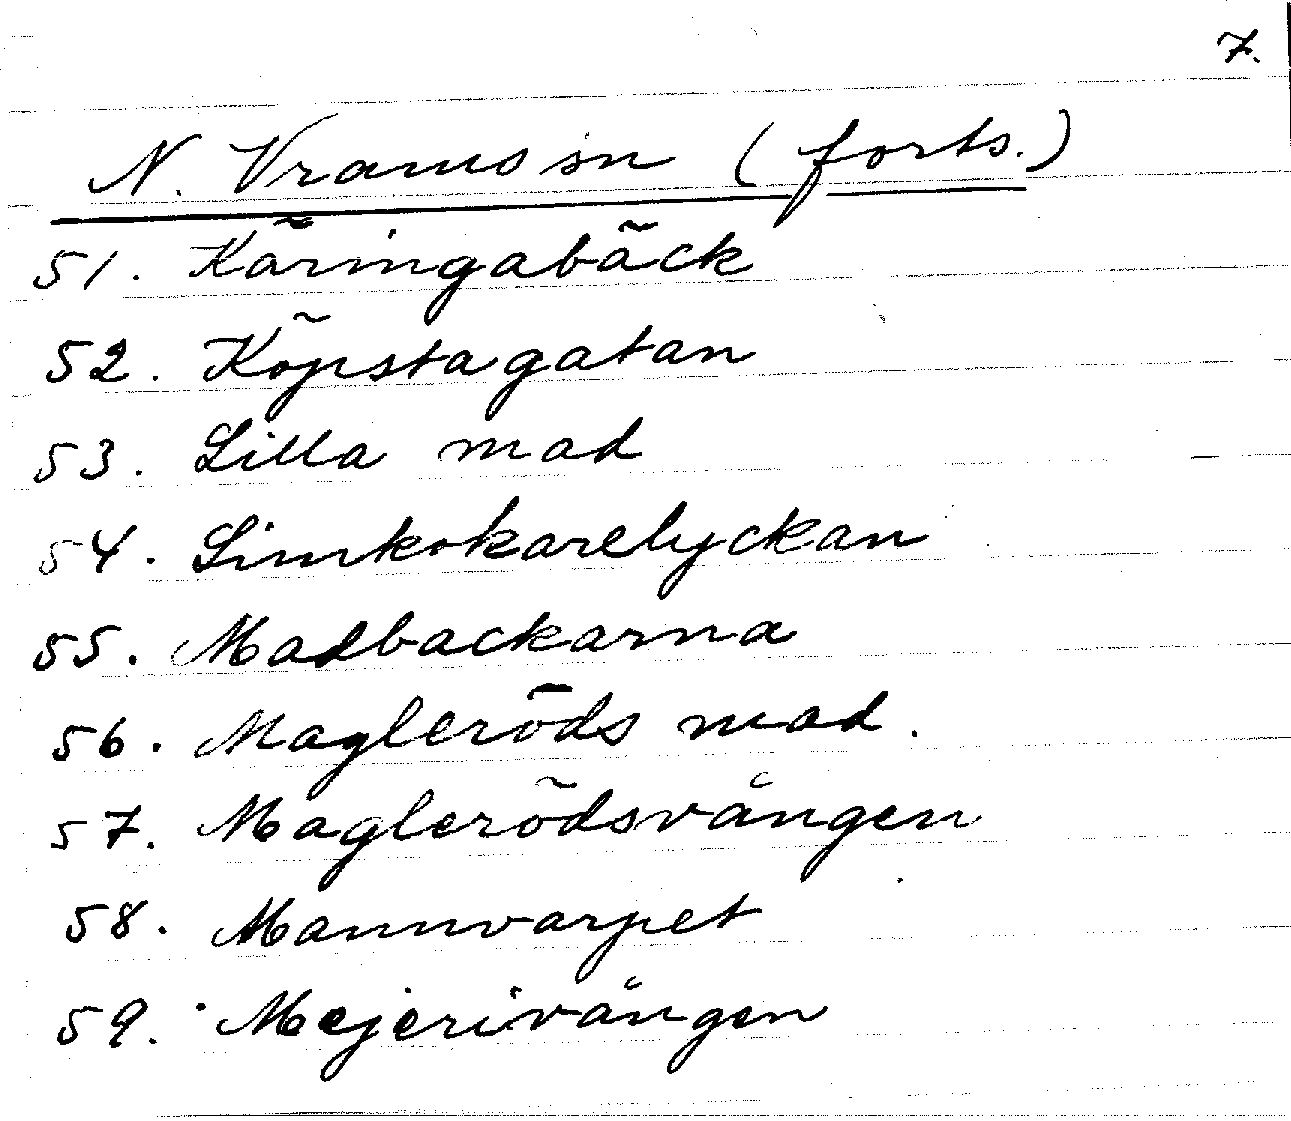 7.
N. Vrams sn (forts.)
51. Käringabäck
52. Köpstagatan
53. Lilla mad
54. Limkokarelyckan
55. Madbackarna
56. Magleröds mad.
57. Maglerödsvången
58. Mannvarpet
59. Mejerivången